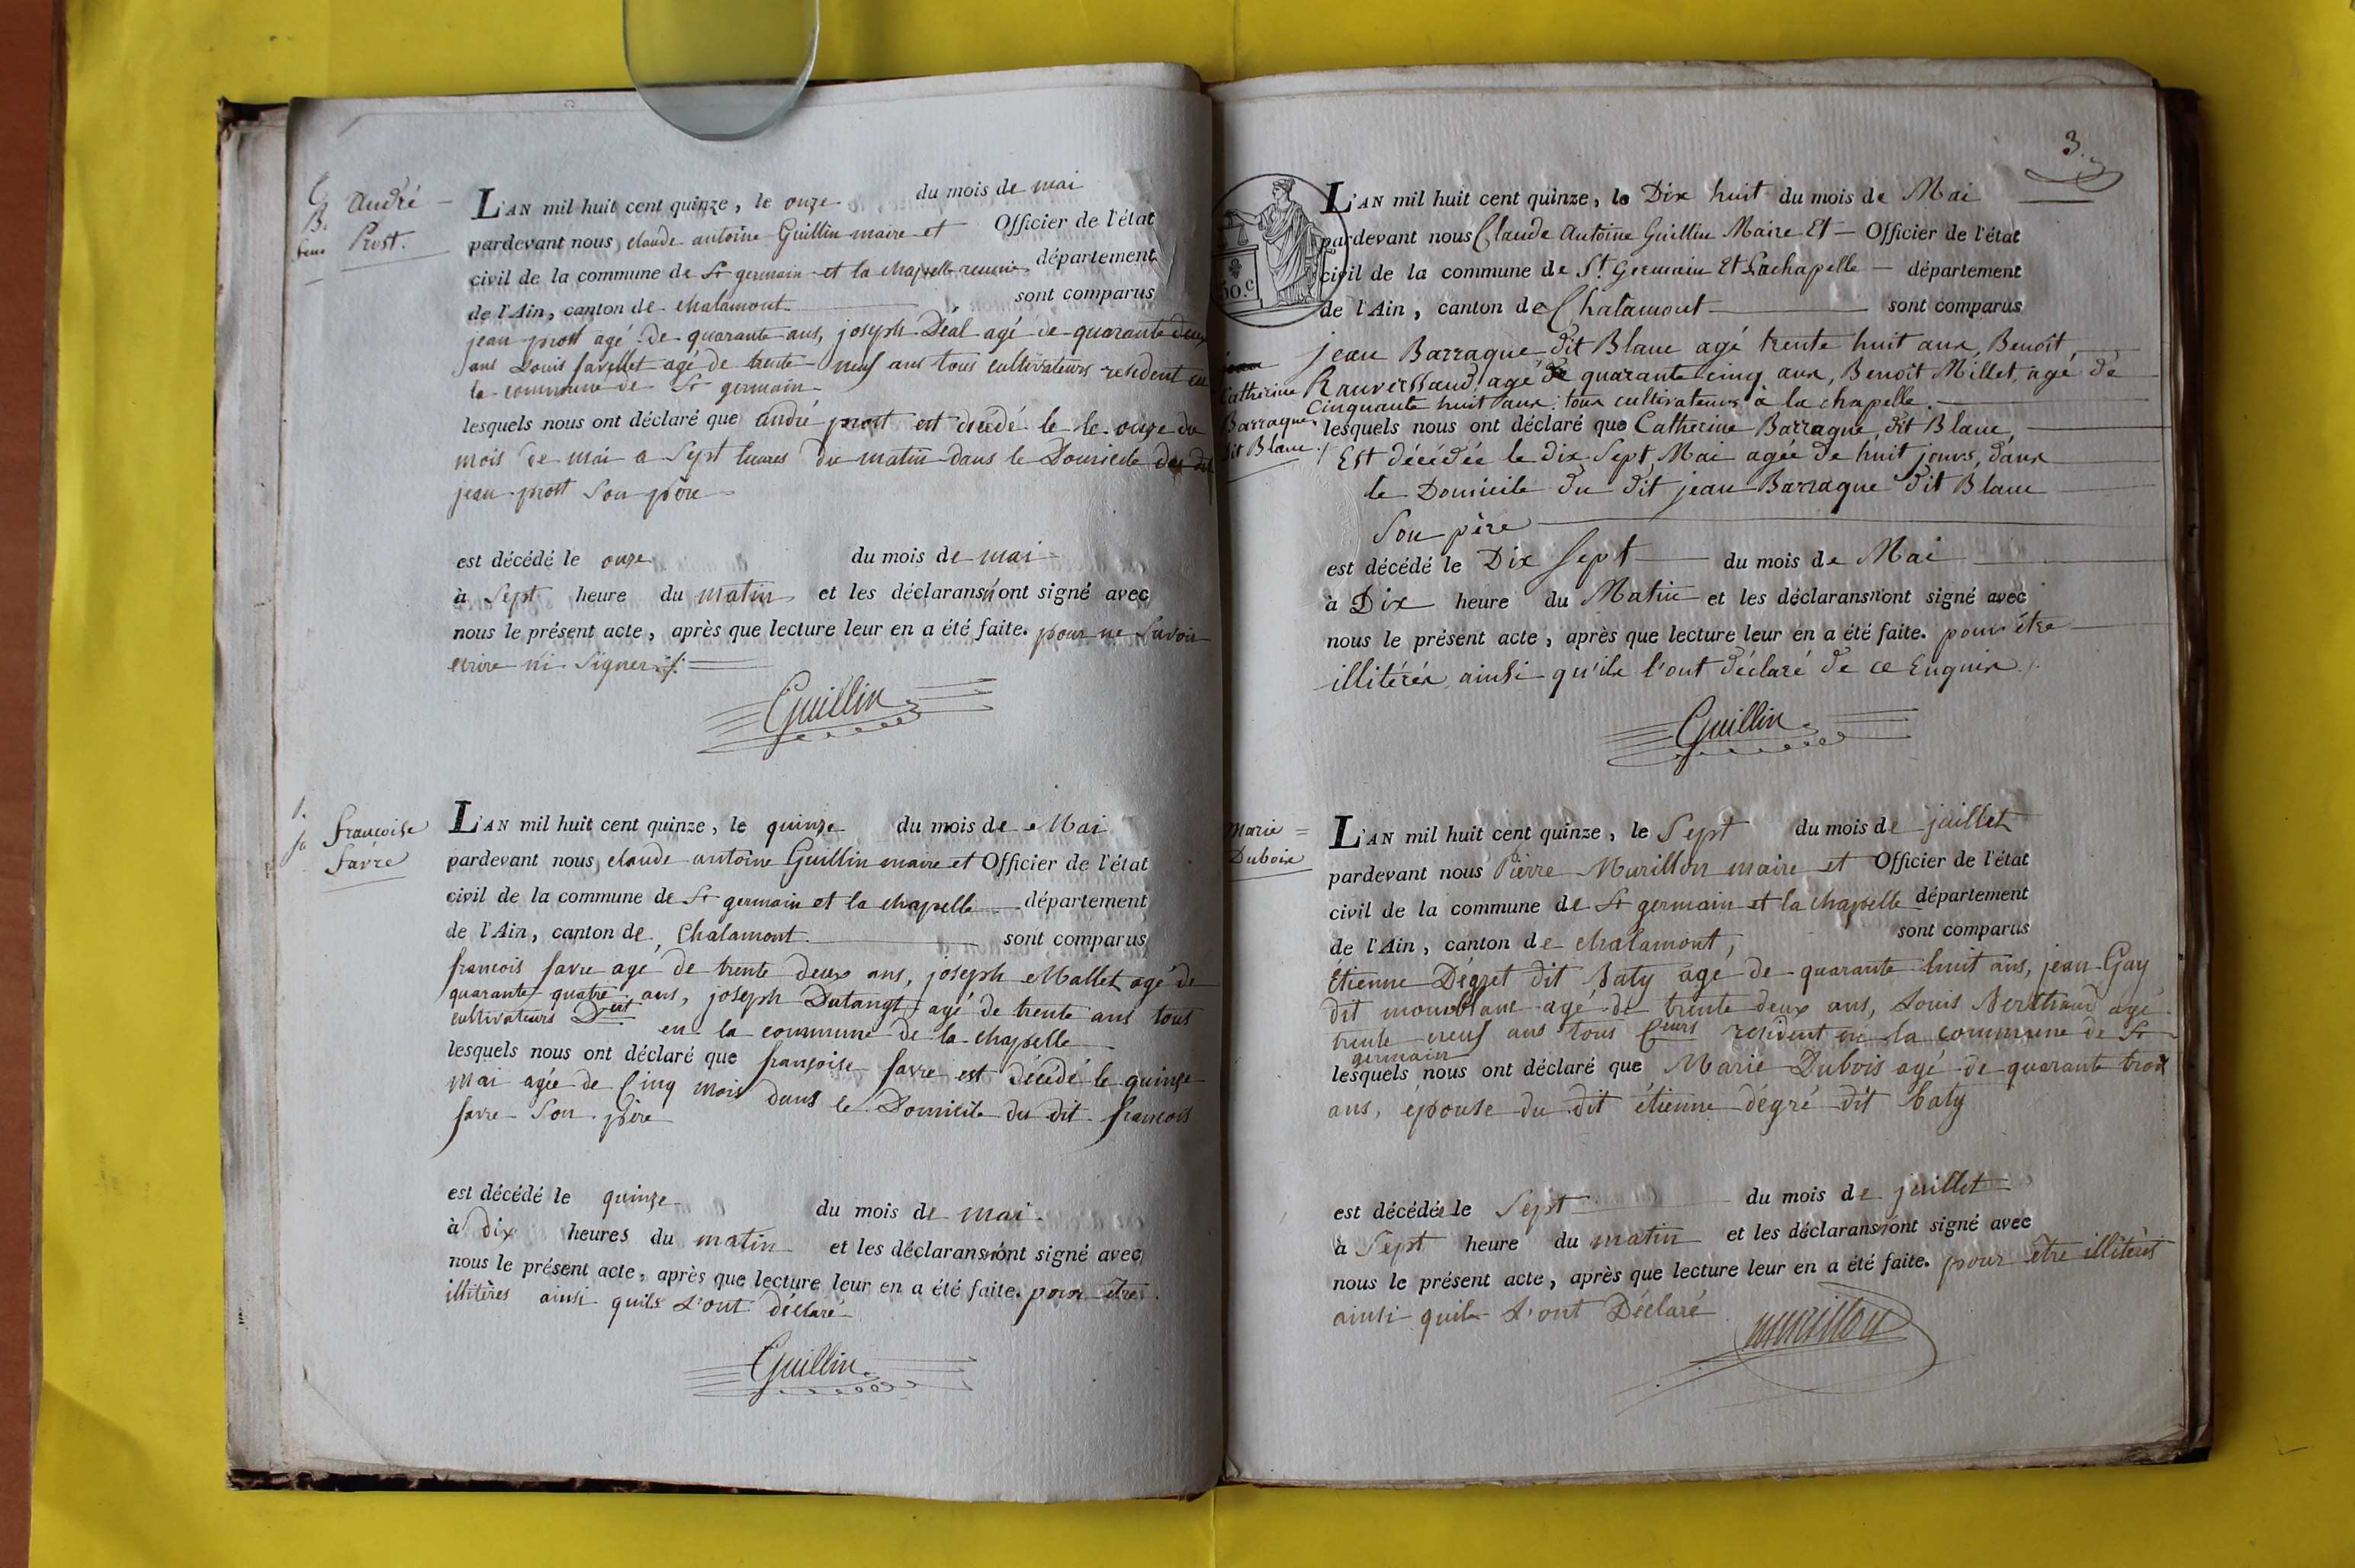 André
Prost.
L'AN mil huit cent quinze, le onze du mois de mai
pardevant nous claude antoine Guillin maire et Officier de l'état
civil de la commune de St germain et la chapelle reunies département
de l'Ain, canton de chalamont sont comparus
jean prost agé de quarante ans, joseph Déal agé de quarante deux
ans Louis favellet agé de trente neuf ans tous cultivateurs resident en
la commune de St germain
lesquels nous ont déclaré que andré prost est décédé le le onze du
mois de mai a Sept heures du matin dans le Domicile du dit
jean prost Son père
est décédé le onze du mois de mai
à Sept heure du matin et les déclarans n'ont signé avec
nous le présent acte, après que lecture leur en a été faite. pour ne Savoir
ecrire ni Signer
Guillin
francoise
favre
L'AN mil huit cent quinze, le quinze du mois de Mai
pardevant nous claude antoine Guillin maire et Officier de l'état
civil de la commune de St germain et la chapelle département
de l'Ain, canton de Chalamont sont comparus
francois favre agé de trente deux ans, joseph Mallet agé de
quarante quatre ans, joseph Dutangt agé de trente ans tous
cultivateurs Dent en la commune de la chapelle
lesquels nous ont déclaré que françoise favre est décédé le quinze
mai agée de Cinq mois dans le Domicile du dit francois
favre Son père
est décédé le quinze du mois de mai
à dix heures du matin et les déclarans n'ont signé avec
nous le présent acte, après que lecture leur en a été faite. pour etre
illitères ainsi quils l'ont déclaré
Guillin
3.
50.c
L'AN mil huit cent quinze, le Dix huit du mois de Mai
pardevant nous Claude Antoine Guillin Maire Et Officier de l'état
civil de la commune de St Germain Et Lachapelle département
de l'Ain, canton de Chalamont sont comparus
Catherine
Barraque
dit Blanc
jean Barraque dit Blanc agé trente huit ans, Benoît
Rauverssaud, agé de quarante cinq ans, Benoît Millet, agé de
Cinquante huit ans, tous cultivateurs à la chapelle.
lesquels nous ont déclaré que Catherine Barraque, dit Blanc,
Est décédée le dix Sept Mai agée de huit jours, dans
le Domicile du dit jean Barraque dit Blanc
Son père
est décédé le Dix Sept du mois de Mai
à Dix heure du Matin et les déclarans n'ont signé avec
nous le présent acte, après que lecture leur en a été faite. pour être
illitérés ainsi qu'ils l'ont déclaré de ce Enquis
Guillin
Marie
Dubois
L'AN mil huit cent quinze, le Sept du mois de juillet
pardevant nous Pierre Murillon maire et Officier de l'état
civil de la commune de St germain et la chapelle département
de l'Ain, canton de chalamont, sont comparus
Etienne Dégret dit Baty age de quarante huit ans, jean Gay
dit montblanc agé de trente deux ans, Louis Berthaud agé
trente neuf ans tous Cteurs resident en la commune de St
germain
lesquels nous ont déclaré que Marie Dubois agé de quarante trois
ans, épouse du dit étienne dégré dit baty
est décédée le Sept du mois de juillet
à Sept heure du matin et les déclarans n'ont signé avec
nous le présent acte, après que lecture leur en a été faite. pour être illiterés
ainsi quils l'ont Déclaré
murillon